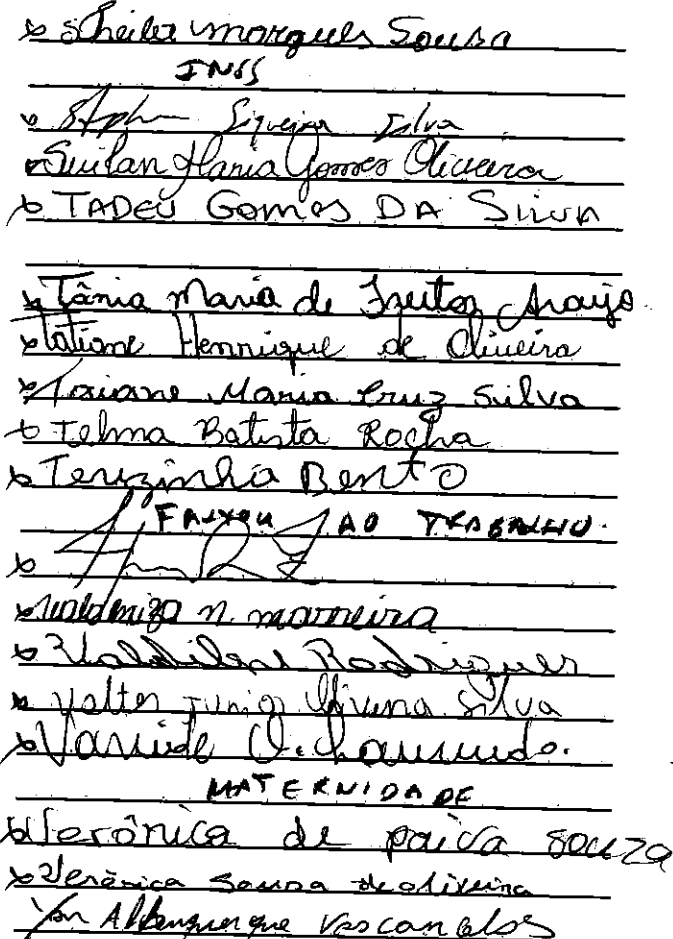 Sheila marques Sousa
INSS
Siqueira Silva
Suilan Maria Gomes Oliveira
TADEU GOMES DA SILVA
Tânia Maria de Freitas Araujo
Tatiane Henrique de Oliveira
Taiane Maria Cruz Silva
Telma Batista Rocha
Terezinha Bento
FALTOU AO TRABALHO.
Valdmiza n. morreira
Valdilene Rodrigues
Valter Junior Silva
Vanuide
MATERNIDADE
Verônica de paiva souza
Verônica Sousa de oliveira
Albuquerque Vasconcelos